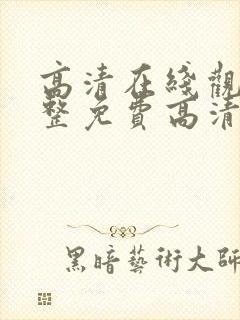 高清在綫觀
整免費高清
黑暗藝術大師